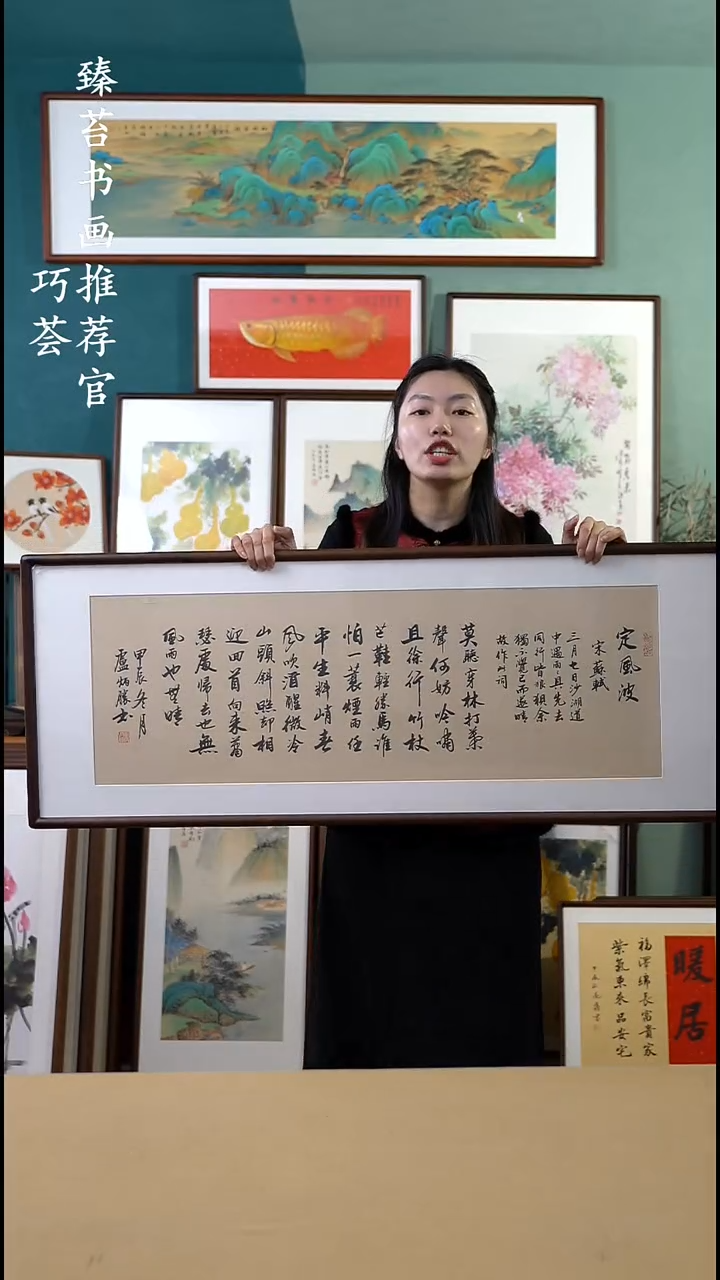 臻苔书画推荐官
巧荟
定風波
宋蘇軾
三月七日沙湖道
中遇雨〻具先去
同行皆狼狽余
獨不覺已而遂晴
故作此詞
莫聽穿林打葉
聲何妨吟嘯
且徐行竹杖
芒鞋輕勝馬誰
怕一蓑煙雨任
平生料峭春
風吹酒醒微冷
山頭斜照却相
迎回首向來蕭
瑟處歸去也無
風雨也無晴
甲辰冬月
盧炳勝書
暖居
福澤綿長富貴家
紫氣東來品安宅